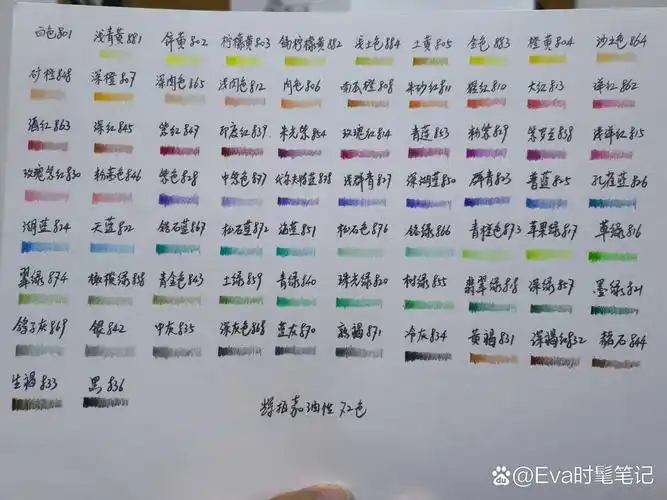 白色801 浅青黄881 锌黄802 柠檬黄803 镉柠檬黄882 浅土色884 土黄805 金色883 橙黄804 沙土色864
砂橙848 深橙807 深肉色865 浅肉色812 肉色806 南瓜橙808 朱砂红811 猩红810 大红813 洋红862
酒红863 深红845 紫红847 印度红839 朱光紫854 玫瑰红814 青莲853 粉紫859 紫罗兰858 浅洋红815
玫瑰紫红830 粉藕色846 紫色828 中紫色837 代尔夫特蓝838 浅群青827 深湖蓝850 群青823 普蓝825 孔雀蓝826
湖蓝824 天蓝822 锆石蓝867 松石蓝872 海蓝851 松石色876 铬绿866 青橙色873 苹果绿817 草绿816
翠绿874 橄榄绿858 青金色863 土绿859 青绿860 珠光绿820 树绿855 翡翠绿818 深绿857 墨绿821
鸽子灰869 银842 中灰835 深灰色868 蓝灰870 熟褐871 冷灰834 黄褐831 深褐红832 赭石844
生褐833 黑836
辉柏嘉油性72色
Bai du @Eva时髦笔记